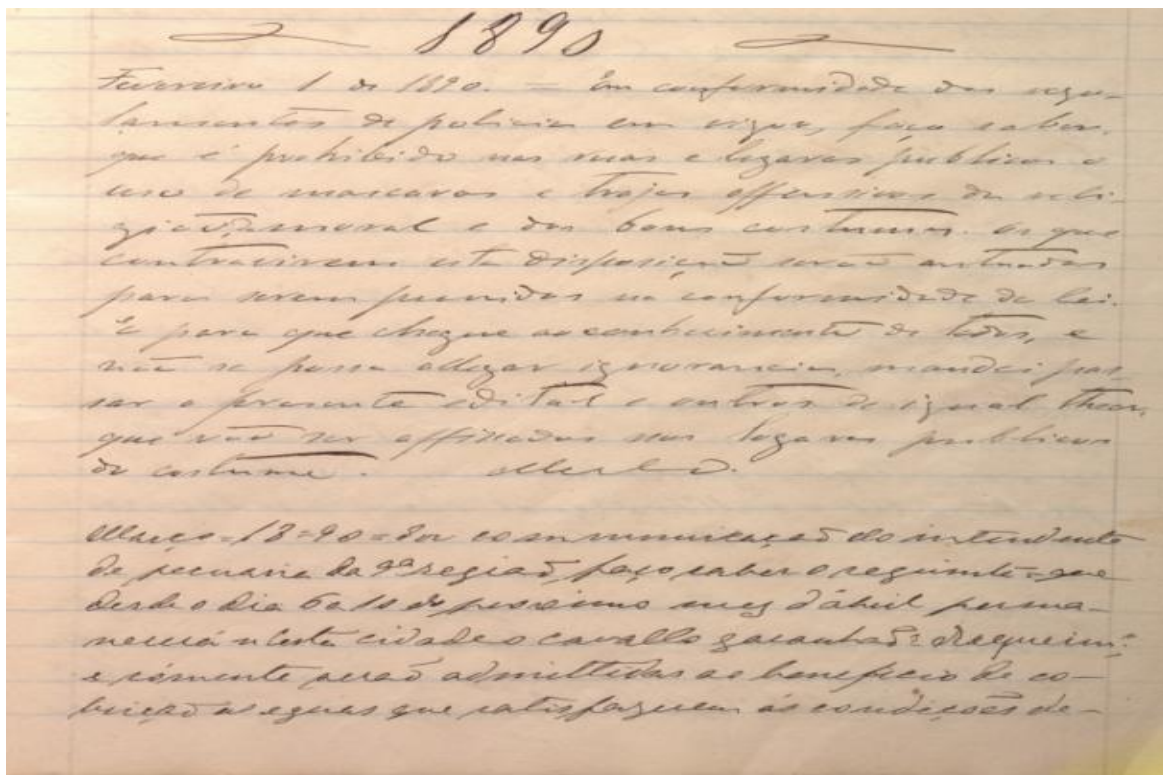 1890
Fevereiro 1 de 1890. = Em conformidade dos regu-
lamentos de policia em vigor, faço saber,
que é prohibido nas ruas e lugares publicos o
uso de mascaras e trajes offensivos da reli-
gião, da moral e dos bons costumes. Os que
contravirem esta disposição serão autuados
para serem punidos na conformidade da lei.
E para que chegue ao conhecimento de todos, e
não se possa allegar ignorancia, mandei pas-
sar o presente edital e outros de igual theor,
que vão ser affixados nos logares publicos
do costume.
Março = 18 = 90 = Por communicação do intendente
de pecuaria da 9ª região, faço saber o seguinte = que
desde o dia 6 a 10 do proximo mez d'abril perma-
necerá n'esta cidade o cavallo garanhão =
e sómente serão admittidas ao beneficio de co-
brição as eguas que satisfazerem ás condições de-